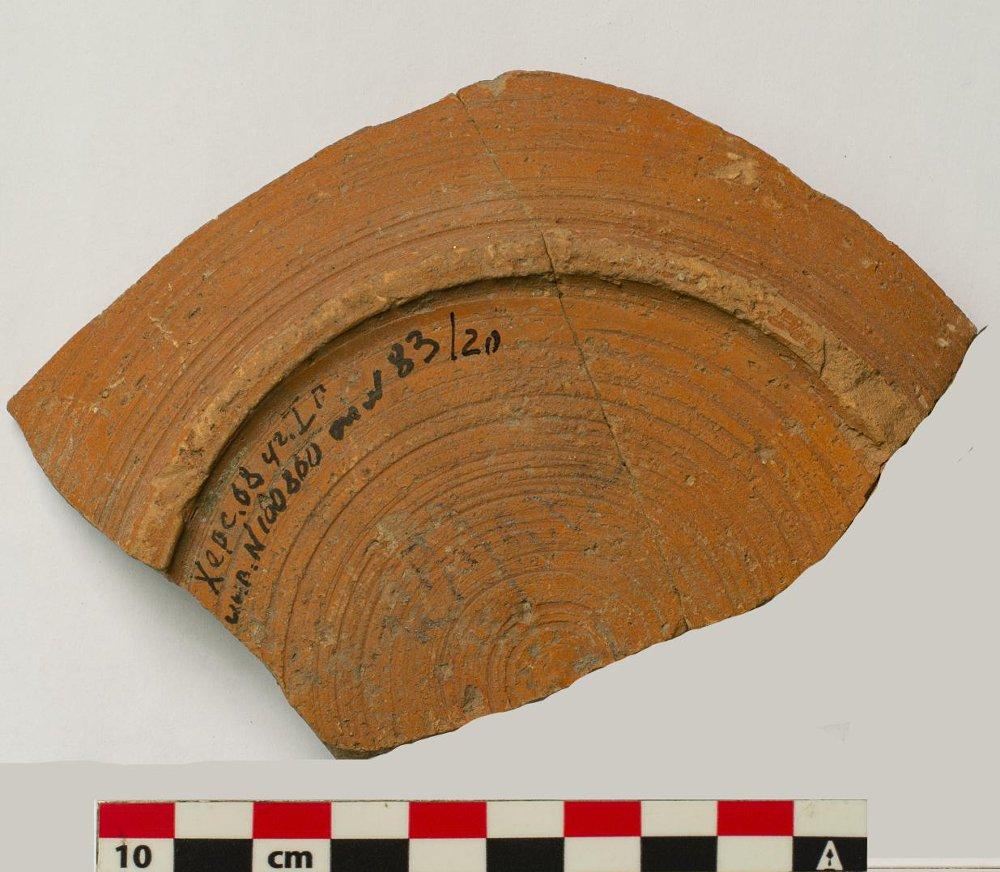 Херс. 68 уч. I п
инв. N 100860
83/20
10 cm